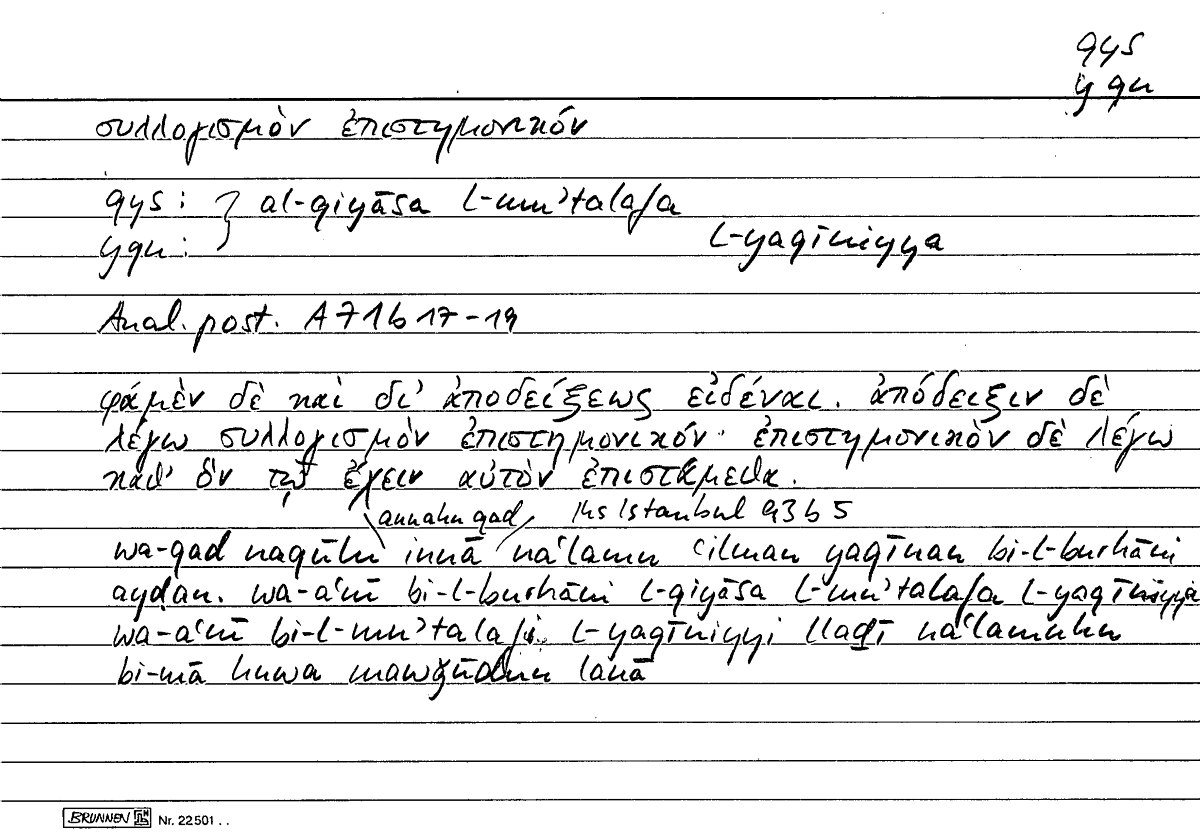 qys
yqn
συλλογισμὸν ἐπιστημονικόν
qys : } al-qiyāsa l-mu'talafa
yqn : l-yaqīniyya
Anal. post. A 71b 17-19
φάμὲν δὲ καὶ δι' ἀποδείξεως εἰδέναι. ἀπόδειξιν δὲ
λέγω συλλογισμὸν ἐπιστημονικόν· ἐπιστημονικὸν δὲ λέγω
καθ' ὃν τῷ ἔχειν αὐτὸν ἐπιστάμεθα.
annahu qad, Hs Istanbul 93b5
wa-qad naqūlu innā na'lamu ʿilman yaqīnan bi-l-burhāni
ayḍan. wa-a'nī bi-l-burhāni l-qiyāsa l-mu'talafa l-yaqīniyya
wa-a'nī bi-l-mu'talafi l-yaqīniyyi llaḏī na'lamuhu
bi-mā huwa mawǧūdun lanā
BRUNNEN Nr. 22501 . .